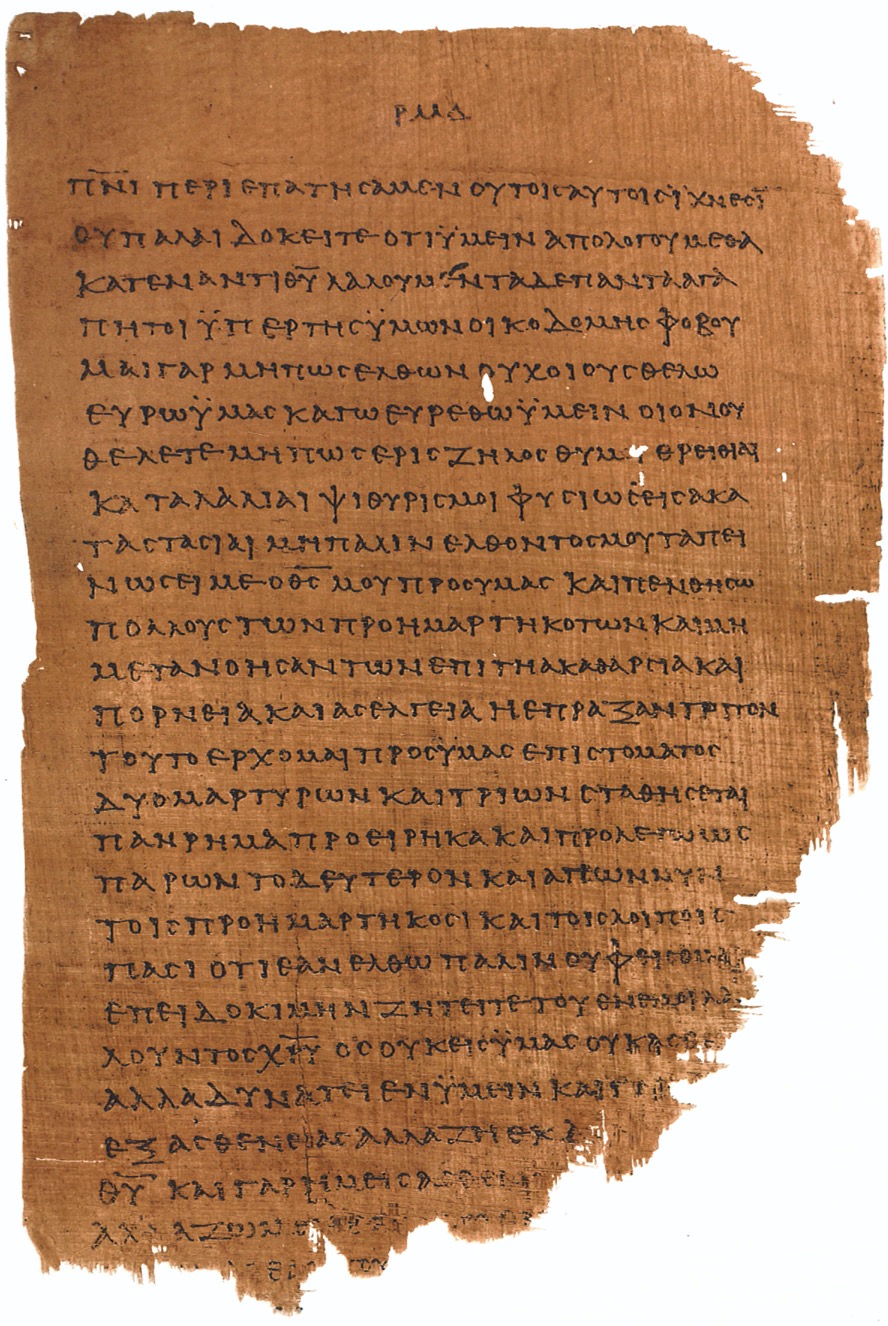 ΡΜΔ
Π̅Ν̅Ι ΠΕΡΙΕΠΑΤΗϹΑΜΕΝ ΟΥ ΤΟΙϹ ΑΥΤΟΙϹ ΪΧΝΕϹΙ
ΟΥ ΠΑΛΑΙ ΔΟΚΕΙΤΕ ΟΤΙ ΫΜΕΙΝ ΑΠΟΛΟΓΟΥΜΕΘΑ
ΚΑΤΕΝΑΝΤΙ Θ̅Υ̅ ΛΑΛΟΥΜΕΝ ΤΑ ΔΕ ΠΑΝΤΑ ΑΓΑ
ΠΗΤΟΙ ΫΠΕΡ ΤΗϹ ΫΜΩΝ ΟΙΚΟΔΟΜΗϹ ΦΟΒΟΥ
ΜΑΙ ΓΑΡ ΜΗ ΠΩϹ ΕΛΘΩΝ ΟΥΧ ΟΙΟΥϹ ΘΕΛΩ
ΕΥΡΩ ΫΜΑϹ ΚΑΓΩ ΕΥΡΕΘΩ ΫΜΕΙΝ ΟΙΟΝ ΟΥ
ΘΕΛΕΤΕ ΜΗ ΠΩϹ ΕΡΙϹ ΖΗΛΟϹ ΕΡΕΙΘΙΑΙ
ΚΑΤΑΛΑΛΙΑΙ ΨΙΘΥΡΙϹΜΟΙ ΦΥϹΙΩϹΕΙϹ ΑΚΑ
ΤΑϹΤΑϹΙΑΙ ΜΗ ΠΑΛΙΝ ΕΛΘΟΝΤΟϹ ΜΟΥ ΤΑΠΕΙ
ΝΩϹΕΙ ΜΕ Ο Θ̅Ϲ̅ ΜΟΥ ΠΡΟϹ ΥΜΑϹ ΚΑΙ ΠΕΝΘΗϹΩ
ΠΟΛΛΟΥϹ ΤΩΝ ΠΡΟΗΜΑΡΤΗΚΟΤΩΝ ΚΑΙ ΜΗ
ΜΕΤΑΝΟΗϹΑΝΤΩΝ ΕΠΙ ΤΗ ΑΚΑΘΑΡϹΙΑ ΚΑΙ
ΠΟΡΝΕΙΑ ΚΑΙ ΑϹΕΛΓΕΙΑ Η ΕΠΡΑΞΑΝ ΤΡΙΤΟΝ
ΤΟΥΤΟ ΕΡΧΟΜΑΙ ΠΡΟϹ ΫΜΑϹ ΕΠΙ ϹΤΟΜΑΤΟϹ
ΔΥΟ ΜΑΡΤΥΡΩΝ ΚΑΙ ΤΡΙΩΝ ϹΤΑΘΗϹΕΤΑΙ
ΠΑΝ ΡΗΜΑ ΠΡΟΕΙΡΗΚΑ ΚΑΙ ΠΡΟΛΕΓΩ ΩϹ
ΠΑΡΩΝ ΤΟ ΔΕΥΤΕΡΟΝ ΚΑΙ ΑΠΩΝ ΝΥΝ
ΤΟΙϹ ΠΡΟΗΜΑΡΤΗΚΟϹΙ ΚΑΙ ΤΟΙϹ ΛΟΙΠΟΙϹ
ΠΑϹΙ ΟΤΙ ΕΑΝ ΕΛΘΩ ΠΑΛΙΝ ΟΥ ΦΕΙϹΟΜΑΙ
ΕΠΕΙ ΔΟΚΙΜΗΝ ΖΗΤΕΙΤΕ ΤΟΥ ΕΝ ΕΜΟΙ ΛΑ
ΛΟΥΝΤΟϹ Χ̅Ρ̅Υ̅ ΟϹ ΟΥΚ ΕΙϹ ΫΜΑϹ ΟΥΚ ΑϹΘΕ
ΑΛΛΑ ΔΥΝΑΤΕΙ ΕΝ ΫΜΕΙΝ ΚΑΙ Γ
ΕΞ ΑϹΘΕΝΕΙΑϹ ΑΛΛΑ ΖΗ ΕΚ
Θ̅Υ̅ ΚΑΙ ΓΑΡ ΗΜΕΙϹ ΑϹΘΕ